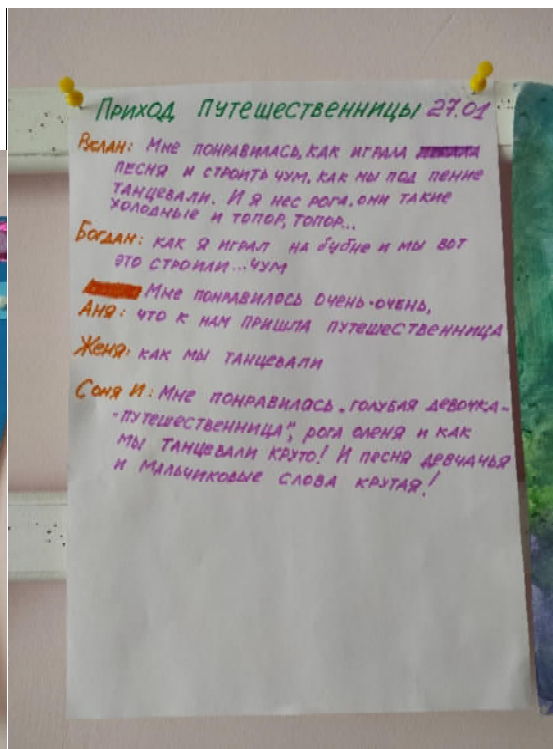 Приход путешественницы 27.01
Руслан: Мне понравилась, как играла
песня и строить чум, как мы под пение
танцевали. И я нес рога, они такие
холодные и топор, топор...
Богдан: как я играл на бубне и мы вот
это строили... чум
Мне понравилось очень-очень,
Аня: что к нам пришла путешественница
Женя: как мы танцевали
Соня И: Мне понравилась, голубая девочка-
-путешественница", рога оленя и как
мы танцевали круто! И песня девчачья
и мальчиковые слова крутая!